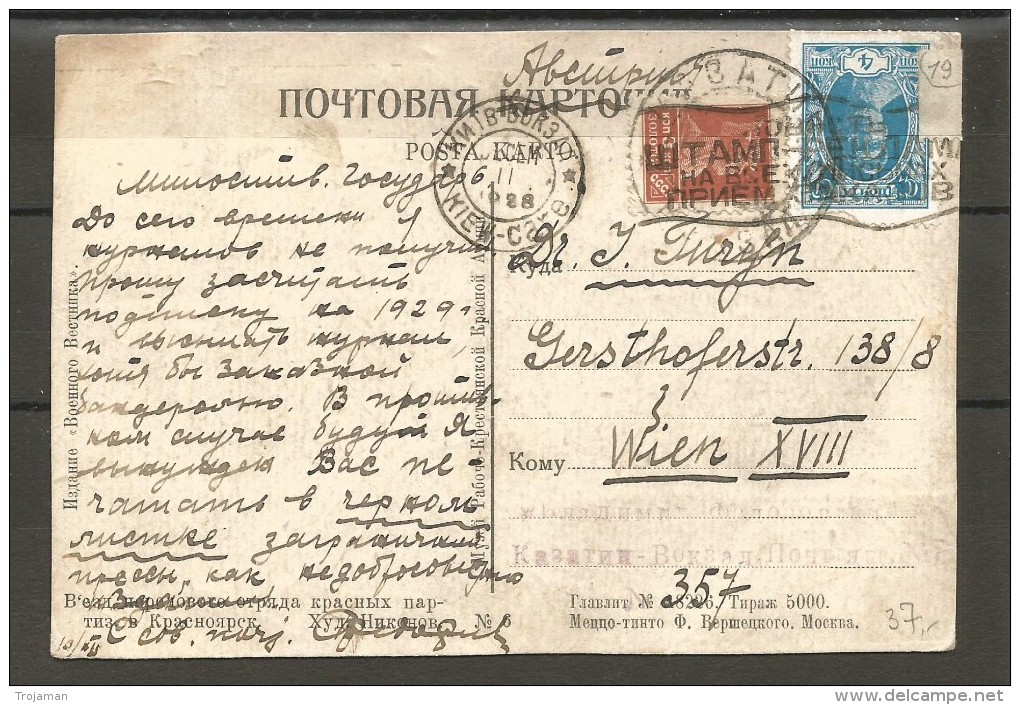 Австрия
ПОЧТОВАЯ КАРТОЧКА
POSTA KARTO
КИЇВ-ВОКЗ
11
28
КІЕМ-С
ШТАМП
НА ВСЕХ
ПРИЕМ
4
19
Милостив. Государь
До сего времени я
журналов не получил
Прошу засчитать
подписку на 1929 г
и высылать журнал,
хотя бы заказной
бандеролью. В против-
ном случае буду я
вынужден Вас пе-
чатать в черном
листке заграничной
прессы, как недобросовестно
С сов. поч.
Издание «Военного Вестника».
Музей Рабоче-Крестьянской Красной
Куда
Dr. J. Turyn
Gersthoferstr. 138/8
Кому
Wien XVIII
Казатин-Вокзал
357
В'езд передового отряда красных пар-
тиз. в Красноярск. Худ. Никонов. № 6
Главлит № Тираж 5000.
Меццо-тинто Ф. Вершецкого. Москва.
37,-
Trojaman
www.delcampe.net